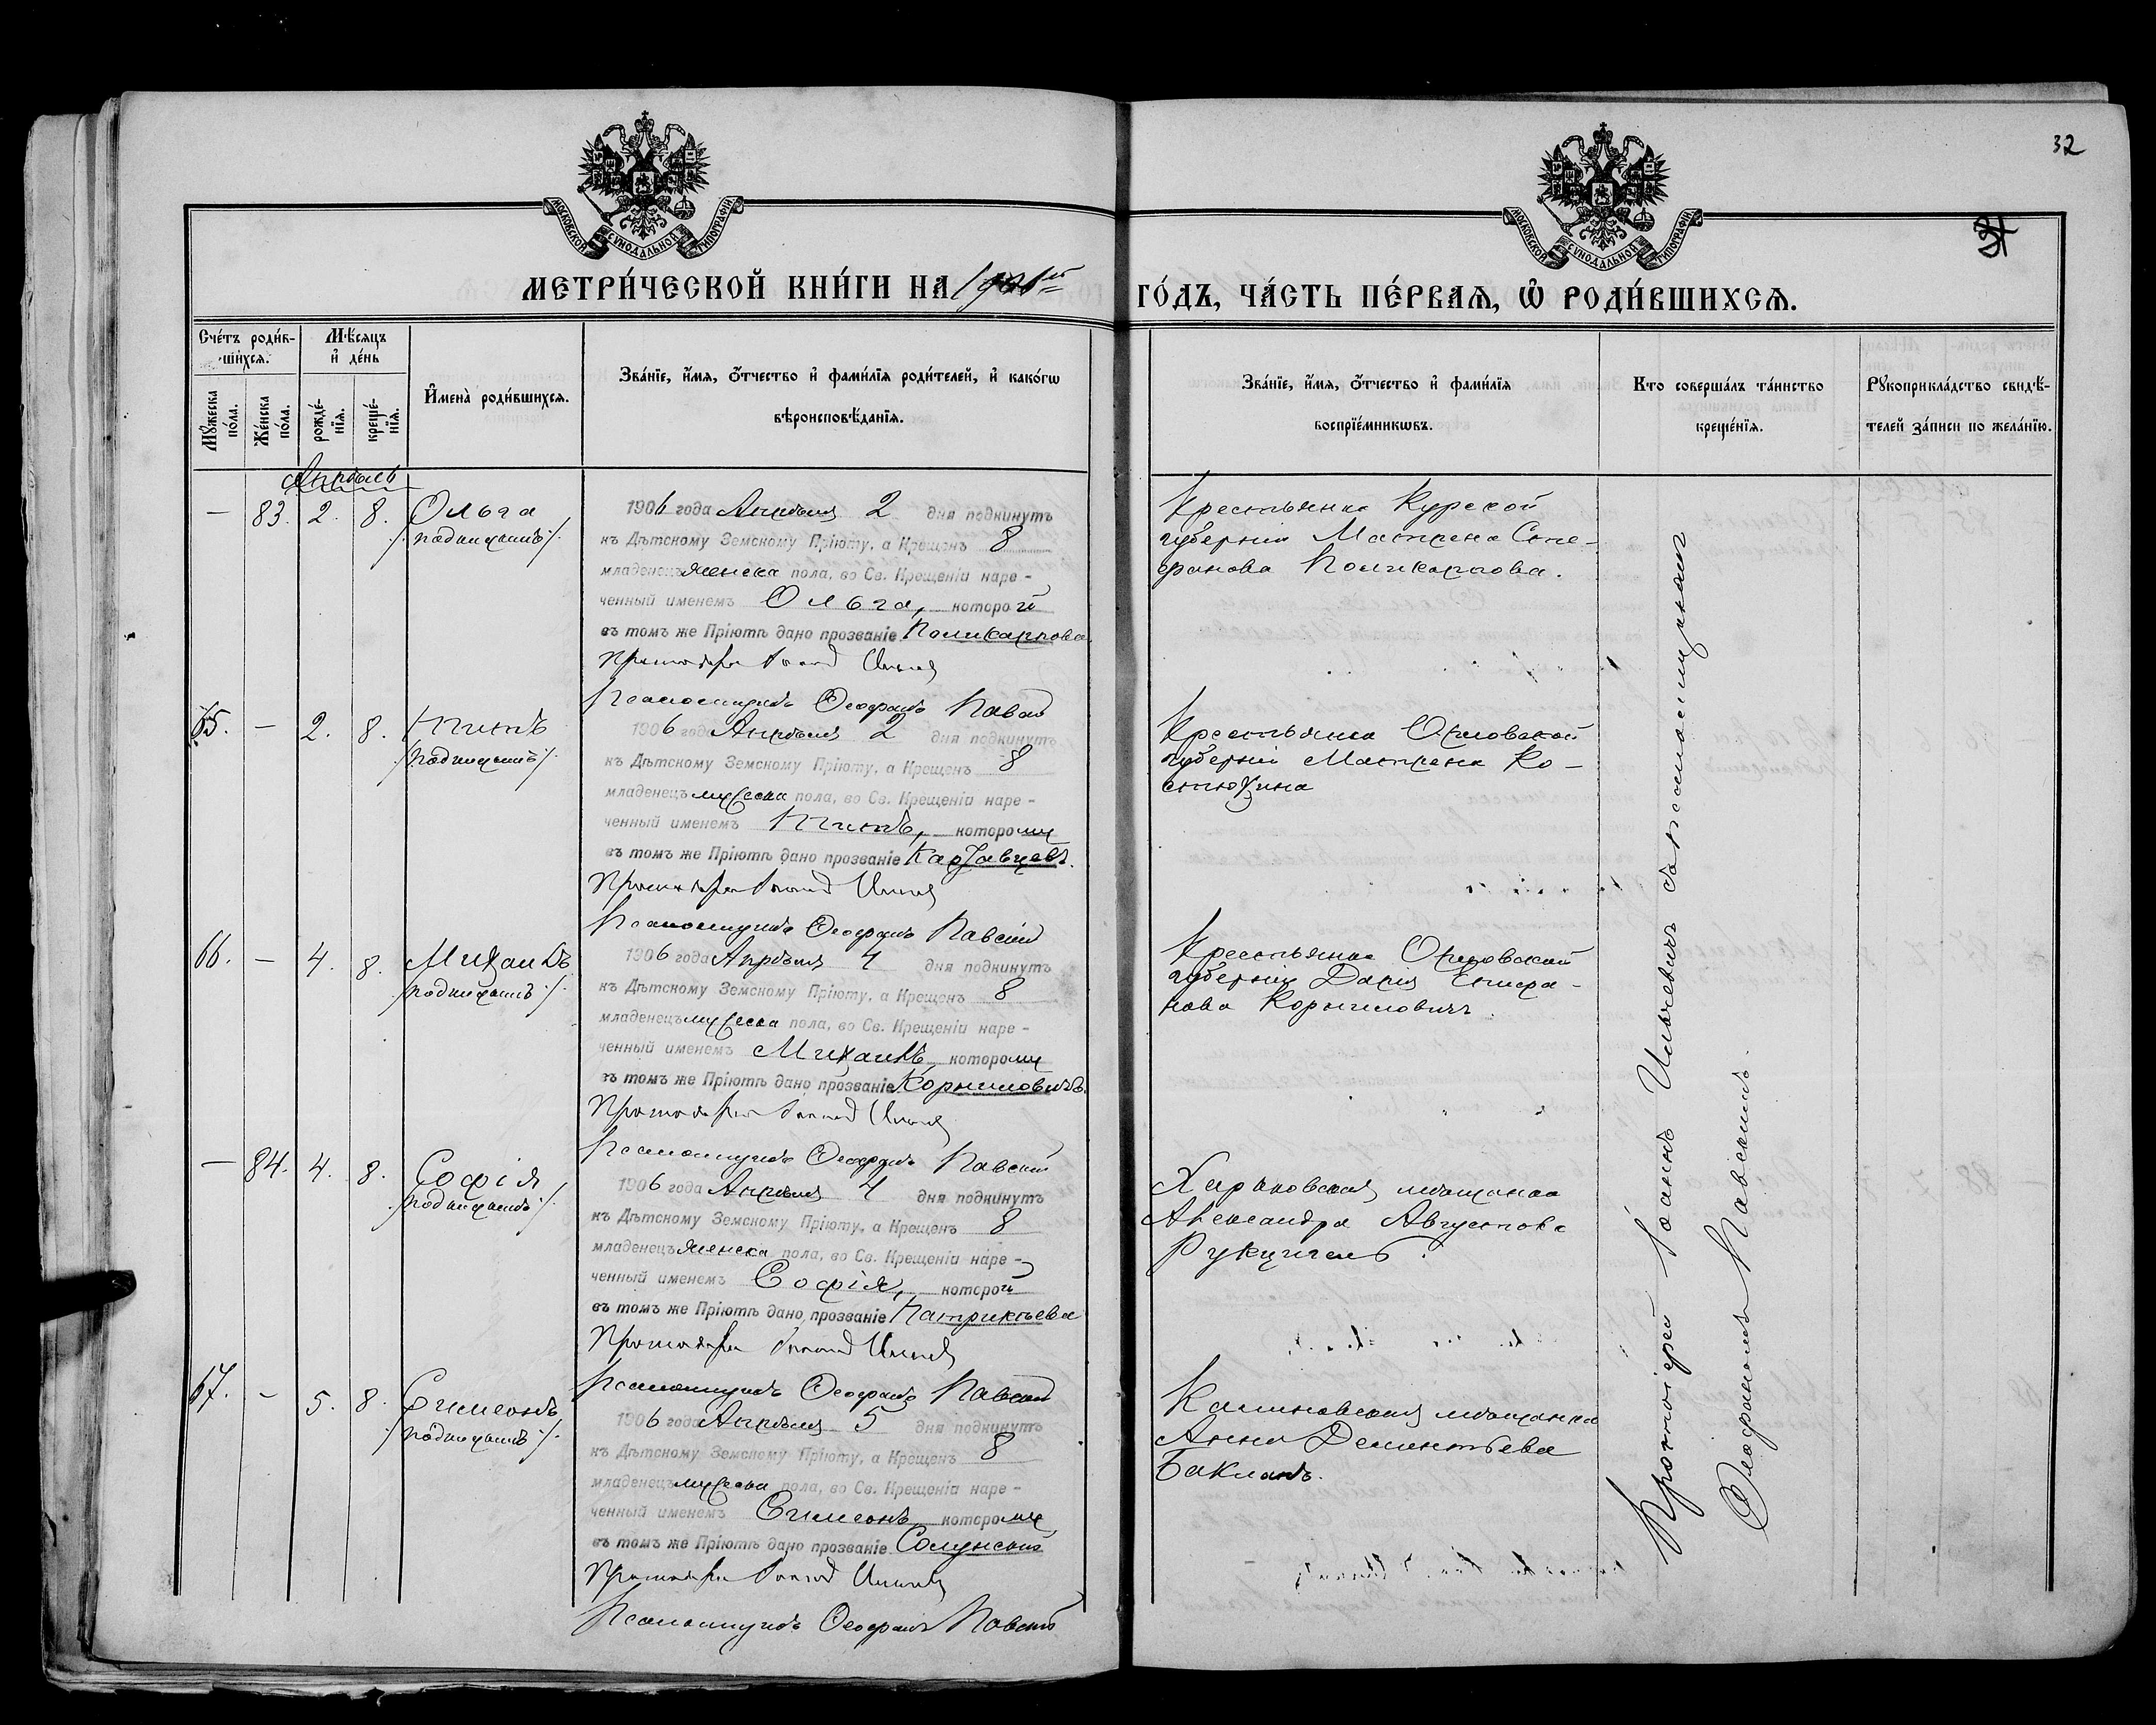 32
МОСКОВСКОЙ СѴНОДАЛЬНОЙ ТИПОГРАФІИ
МОСКОВСКОЙ СѴНОДАЛЬНОЙ ТИПОГРАФІИ
МЕТРИ́ЧЕСКОЙ КНИ́ГИ НА 1906 го҆́дъ, ЧА́СТЬ ПЕ́РВАЯ, Ѡ҆ РОДИ́ВШИХСЯ.
Сче́тъ роди́в-
ши́хся.
Мѣ́сяцъ
и҆ де́нь
Му́жеска
по́ла.
Же́нска
по́ла.
рожде́-
нїя.
креще́-
нїя.
И҆мена̀ роди́вшихся.
Зва́нїе, и҆́мя, ѻ҆́тчество и҆ фами́лїя роди́телей, и҆ како́гѡ
вѣроисповѣ́данїя.
Зва́нїе, и҆́мя, ѻ҆́тчество и҆ фами́лїя
воспрїе́мникѡвъ.
Кто соверша́лъ та́инство
креще́нїя.
Рукоприкла́дство свидѣ́-
телей за́писи по жела́нїю.
Апрѣль
— 83. 2. 8. Ольга
/подкидышъ/.
1906 года Апрѣля 2 дня подкинутъ
къ Дѣтскому Земскому Пріюту, а Крещенъ 8
младенецъ женска пола, во Св. Крещеніи наре-
ченный именемъ Ольга, которой
въ томъ же Пріютѣ дано прозваніе Поликарпова.
Протоіерей Іоаннъ
Псаломщикъ Ѳеофанъ Павскій
Крестьянка Курской
губерніи Матрена Сте-
фанова Поликарпова.
65. — 2. 8. Титъ
/подкидышъ/.
1906 года Апрѣля 2 дня подкинутъ
къ Дѣтскому Земскому Пріюту, а Крещенъ 8
младенецъ мужеска пола, во Св. Крещеніи наре-
ченный именемъ Титъ, которому
въ томъ же Пріютѣ дано прозваніе Каржавцевъ.
Протоіерей Іоаннъ
Псаломщикъ Ѳеофанъ Павскій
Крестьянка Орловской
губерніи Матрена Ко-
стюхина
66. — 4. 8. Михаилъ
/подкидышъ/.
1906 года Апрѣля 4 дня подкинутъ
къ Дѣтскому Земскому Пріюту, а Крещенъ 8
младенецъ мужеска пола, во Св. Крещеніи наре-
ченный именемъ Михаилъ, которому
въ томъ же Пріютѣ дано прозваніе Корниловичъ.
Протоіерей Іоаннъ
Псаломщикъ Ѳеофанъ Павскій
Крестьянка Орловской
губерніи Дарія Епифа-
нова Корниловичъ.
— 84. 4. 8. Софія
/подкидышъ/.
1906 года Апрѣля 4 дня подкинутъ
къ Дѣтскому Земскому Пріюту, а Крещенъ 8
младенецъ женска пола, во Св. Крещеніи наре-
ченный именемъ Софія, которой
въ томъ же Пріютѣ дано прозваніе Патрикѣева
Протоіерей Іоаннъ
Псаломщикъ Ѳеофанъ Павскій
Харьковская мѣщанка
Александра Августова
67. — 5. 8. Симеонъ
/подкидышъ/.
1906 года Апрѣля 5 дня подкинутъ
къ Дѣтскому Земскому Пріюту, а Крещенъ 8
младенецъ мужеска пола, во Св. Крещеніи наре-
ченный именемъ Симеонъ, которому
въ томъ же Пріютѣ дано прозваніе Солунскій
Протоіерей Іоаннъ
Псаломщикъ Ѳеофанъ Павскій
мѣщанка
Анна Дементьева
Бакланъ.
Протоіерей Іоаннъ съ псаломщикомъ
Ѳеофаномъ Павскимъ.